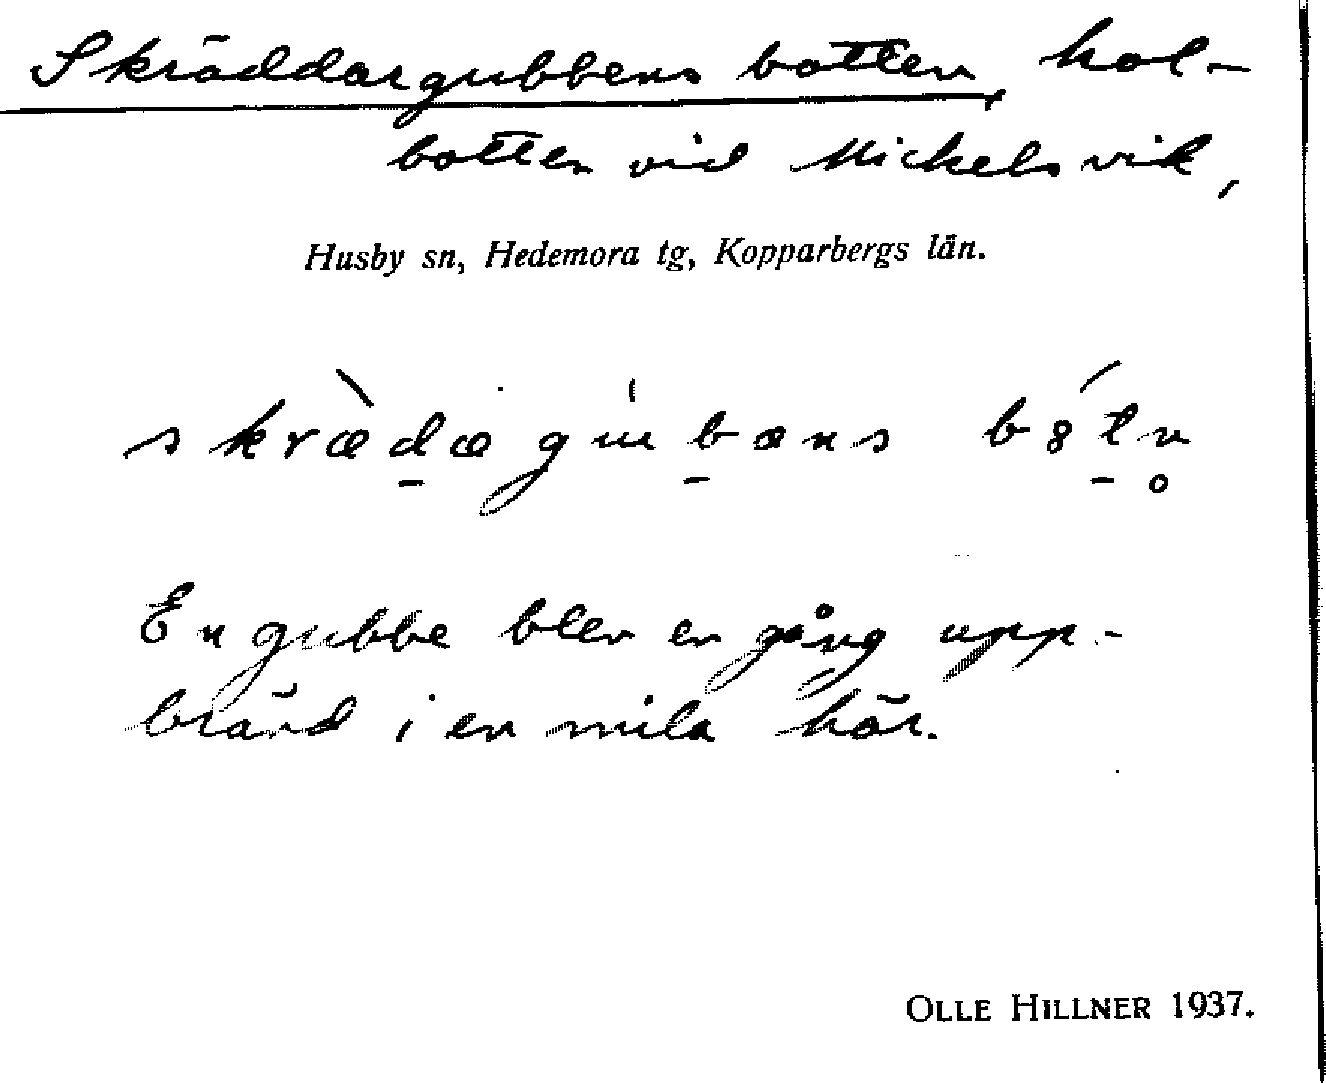 Skräddargubbens botten, kol-
botten vid Mickelsvik,
Husby sn, Hedemora tg, Kopparbergs län.
skræ̀dægubæns b8́tn̥
En gubbe blev en gång upp-
bränd i en mila här.
OLLE HILLNER 1937.